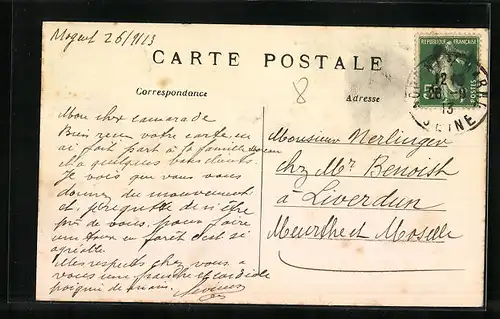 Nogent 26/9/13
CARTE POSTALE
Correspondance
Adresse
8
REPUBLIQUE FRANÇAISE
12
26
13
SEINE
Mon cher camarade
Bien reçu votre carte, en
ai fait part à la famille
il y a quelques
Je vois que vous vous
donnez du mouvement
de n'être
près de vous, pour faire
un tour en forêt c'est si
agréable
Mes respects chez vous, à
vous une franche et cordiale
poignée de main.
Monsieur Nerlinger
chez Mr. Benoist
à Liverdun
Meurthe et Moselle